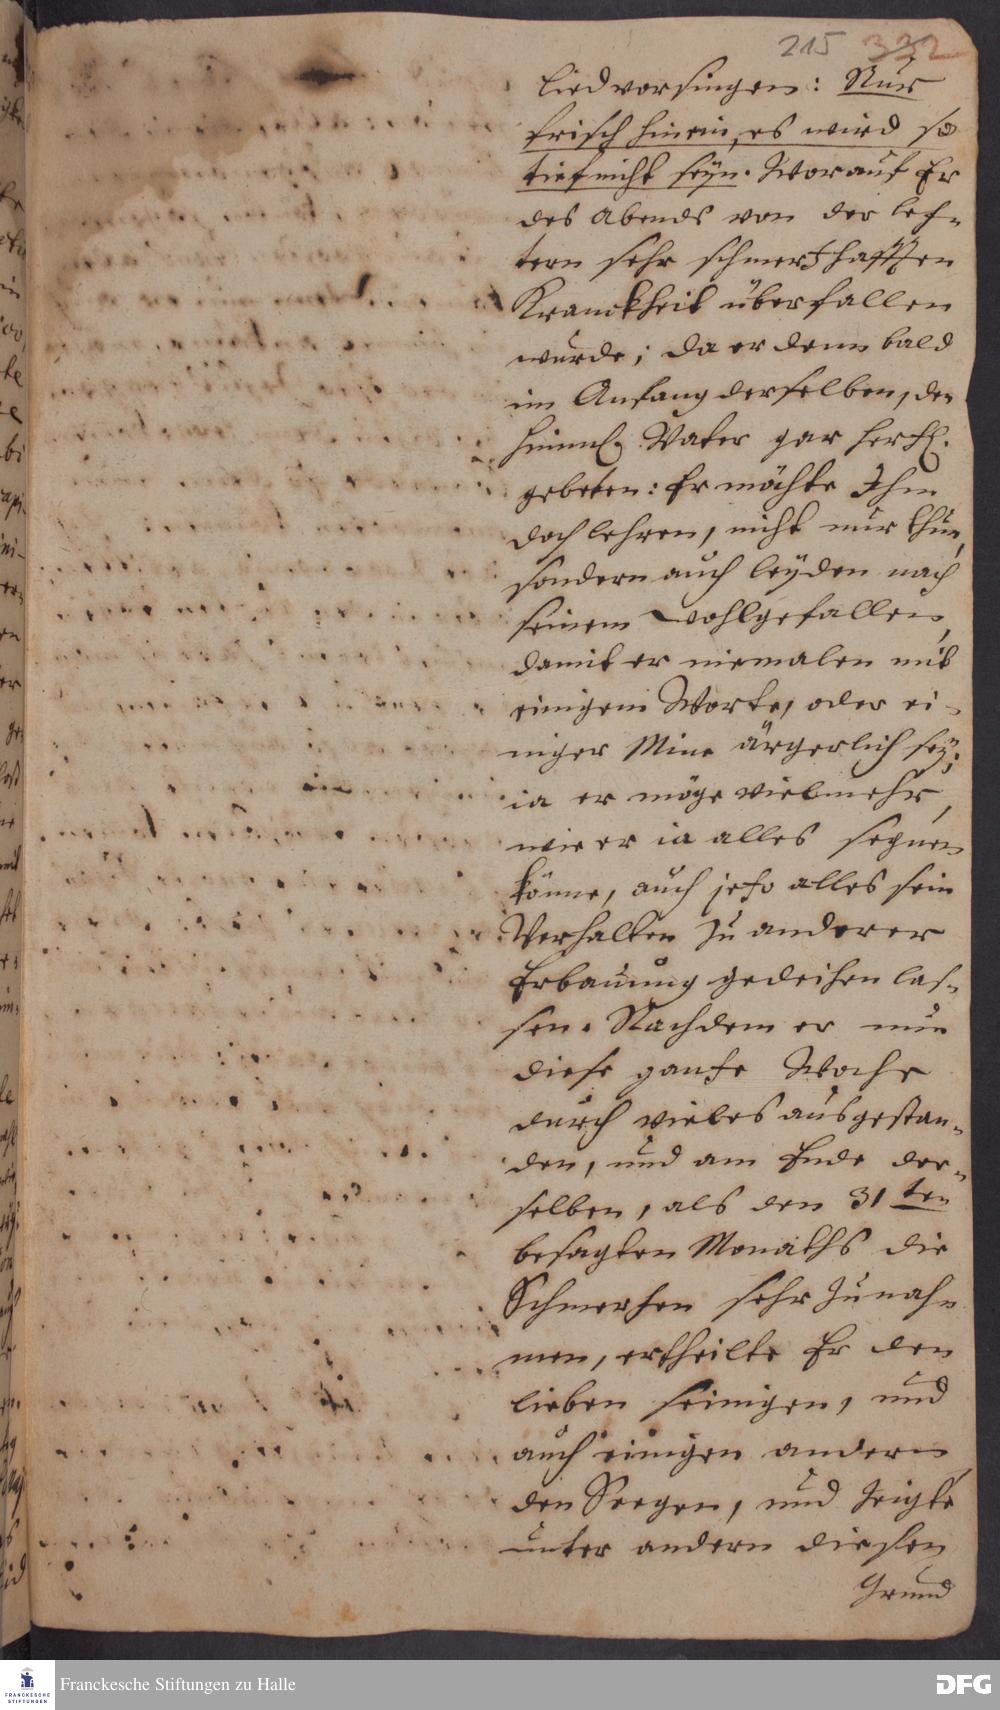 215 332
Lied vorsingen: Nur
frisch hinein, es wird so
tief nicht seyn. Worauf Er
des Abends von der letz-
tern sehr schmertzhafften
Kranckheit überfallen
wurde; da er denn bald
im Anfang derselben, den
himml. Vater gar hertzl.
gebeten: Er möchte Ihm
doch lehren, nicht nur thun,
sondern auch leyden nach
seinem Wohlgefallen,
damit er niemalen mit
einigem Worte, oder ei-
niger Mine ärgerlich sey;
ia er möge vielmehr,
wie er ia alles segnen
könne, auch jetzo alles sein
Verhalten zu anderer
Erbauung gedeihen las-
sen. Nachdem er nun
diese gantze Woche
durch vieles ausgestan-
den, und am Ende der-
selben, als den 31 ten
besagten Monaths die
Schmertzen sehr zunah-
men, ertheilte Er den
lieben seinigen, und
auch einigen andern
den Seegen, und zeigte
unter andern diesen
Grund
Franckesche Stiftungen zu Halle
DFG